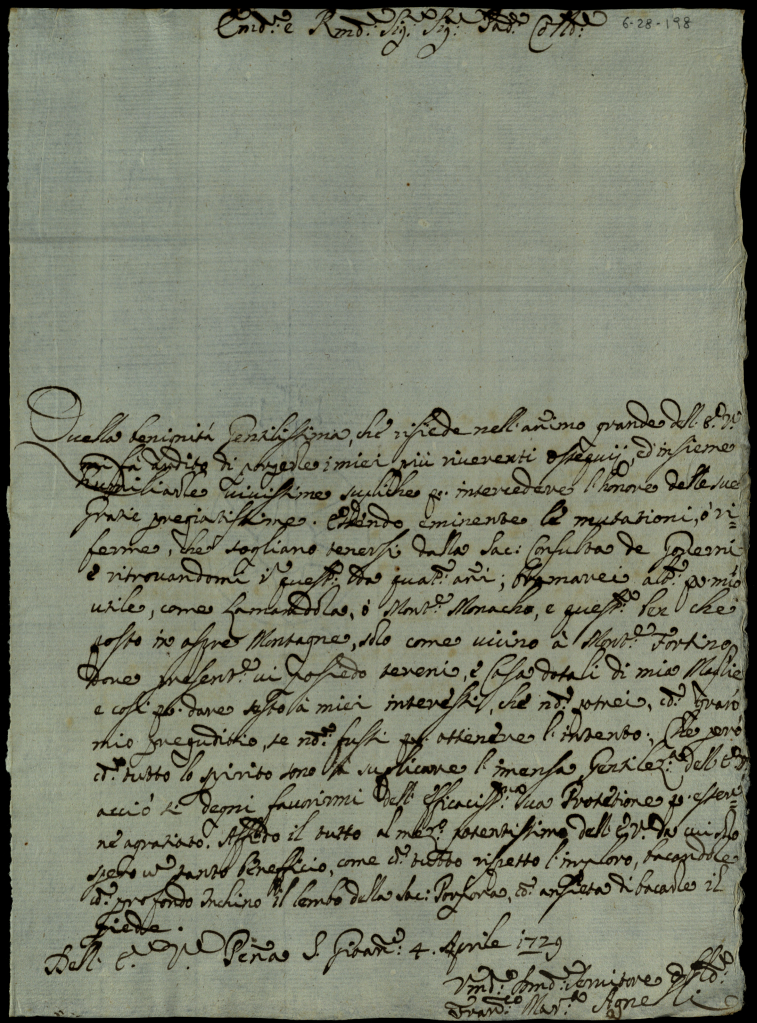 Em.mo e Rmd.mo Sig.r Sig.r Pad.ne Coll.mo
6-28-198
Quella benignità Gentilissima, che risiede nell'animo grande dell'E. V.
mi fà ardito di porgerle i miei più riverenti ossequij, ed insieme
humiliarle vivissime supliche p. intercedere l'honore delle sue
Grazie pregiatissime. Essendo eminente le mutationi, ò ri=
ferme, che sogliano tenersi dalla Sac: Consulta de Governi
e ritrovandomi in quest: da quat: anni; bramarei alt: p. mio
utile, come Lamandola, ò Mont: Monacho, e quest: ben che
posto in aspre Montagne, solo come vicino à Mont: Fortino
dove present: vi posiedo tereni, e Casa dotali di mia Moglie
e così p. dare sesto à miei interessi, che nò potrei, cò grave
mio pregiuditio, se nò fussi p. ottenere l'intento. Che però
cò tutto lo spirito sono à suplicare l'imensa Gentilez: dell'E. V.
acciò si degni favorirmi dell'efficaciss: sua Protetione p.ester=
ne agratiato. Affido il tutto al mer: potentissimo dell'E. V. da cui solo
spero un tanto Benefficio, come cò tutto rispetto l'imploro, baciandole
cò profondo Inchino il lembo della Sac: Porpora, cò ansietà di baciarle il
piede.
Dell'E. V. Penna S. Giovan: 4. Aprile 1729
Um.mo Dev.mo Servitore Obl.mo
Fran.co Mar. Agnelli